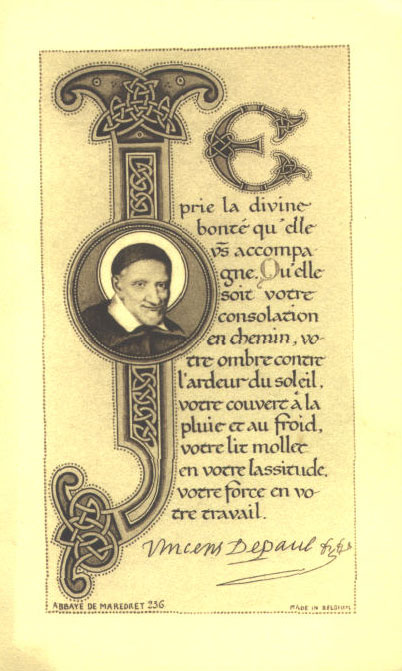 JE
prie la divine
bonté qu'elle
vs accompa-
gne. Qu'elle
soit votre
consolation
en chemin, vo-
tre ombre contre
l'ardeur du soleil,
votre couvert à la
pluie et au froid,
votre lit mollet
en votre lassitude,
votre force en vo-
tre travail.
Vincens Depaul
ABBAYE DE MAREDRET 236
MADE IN BELGIUM